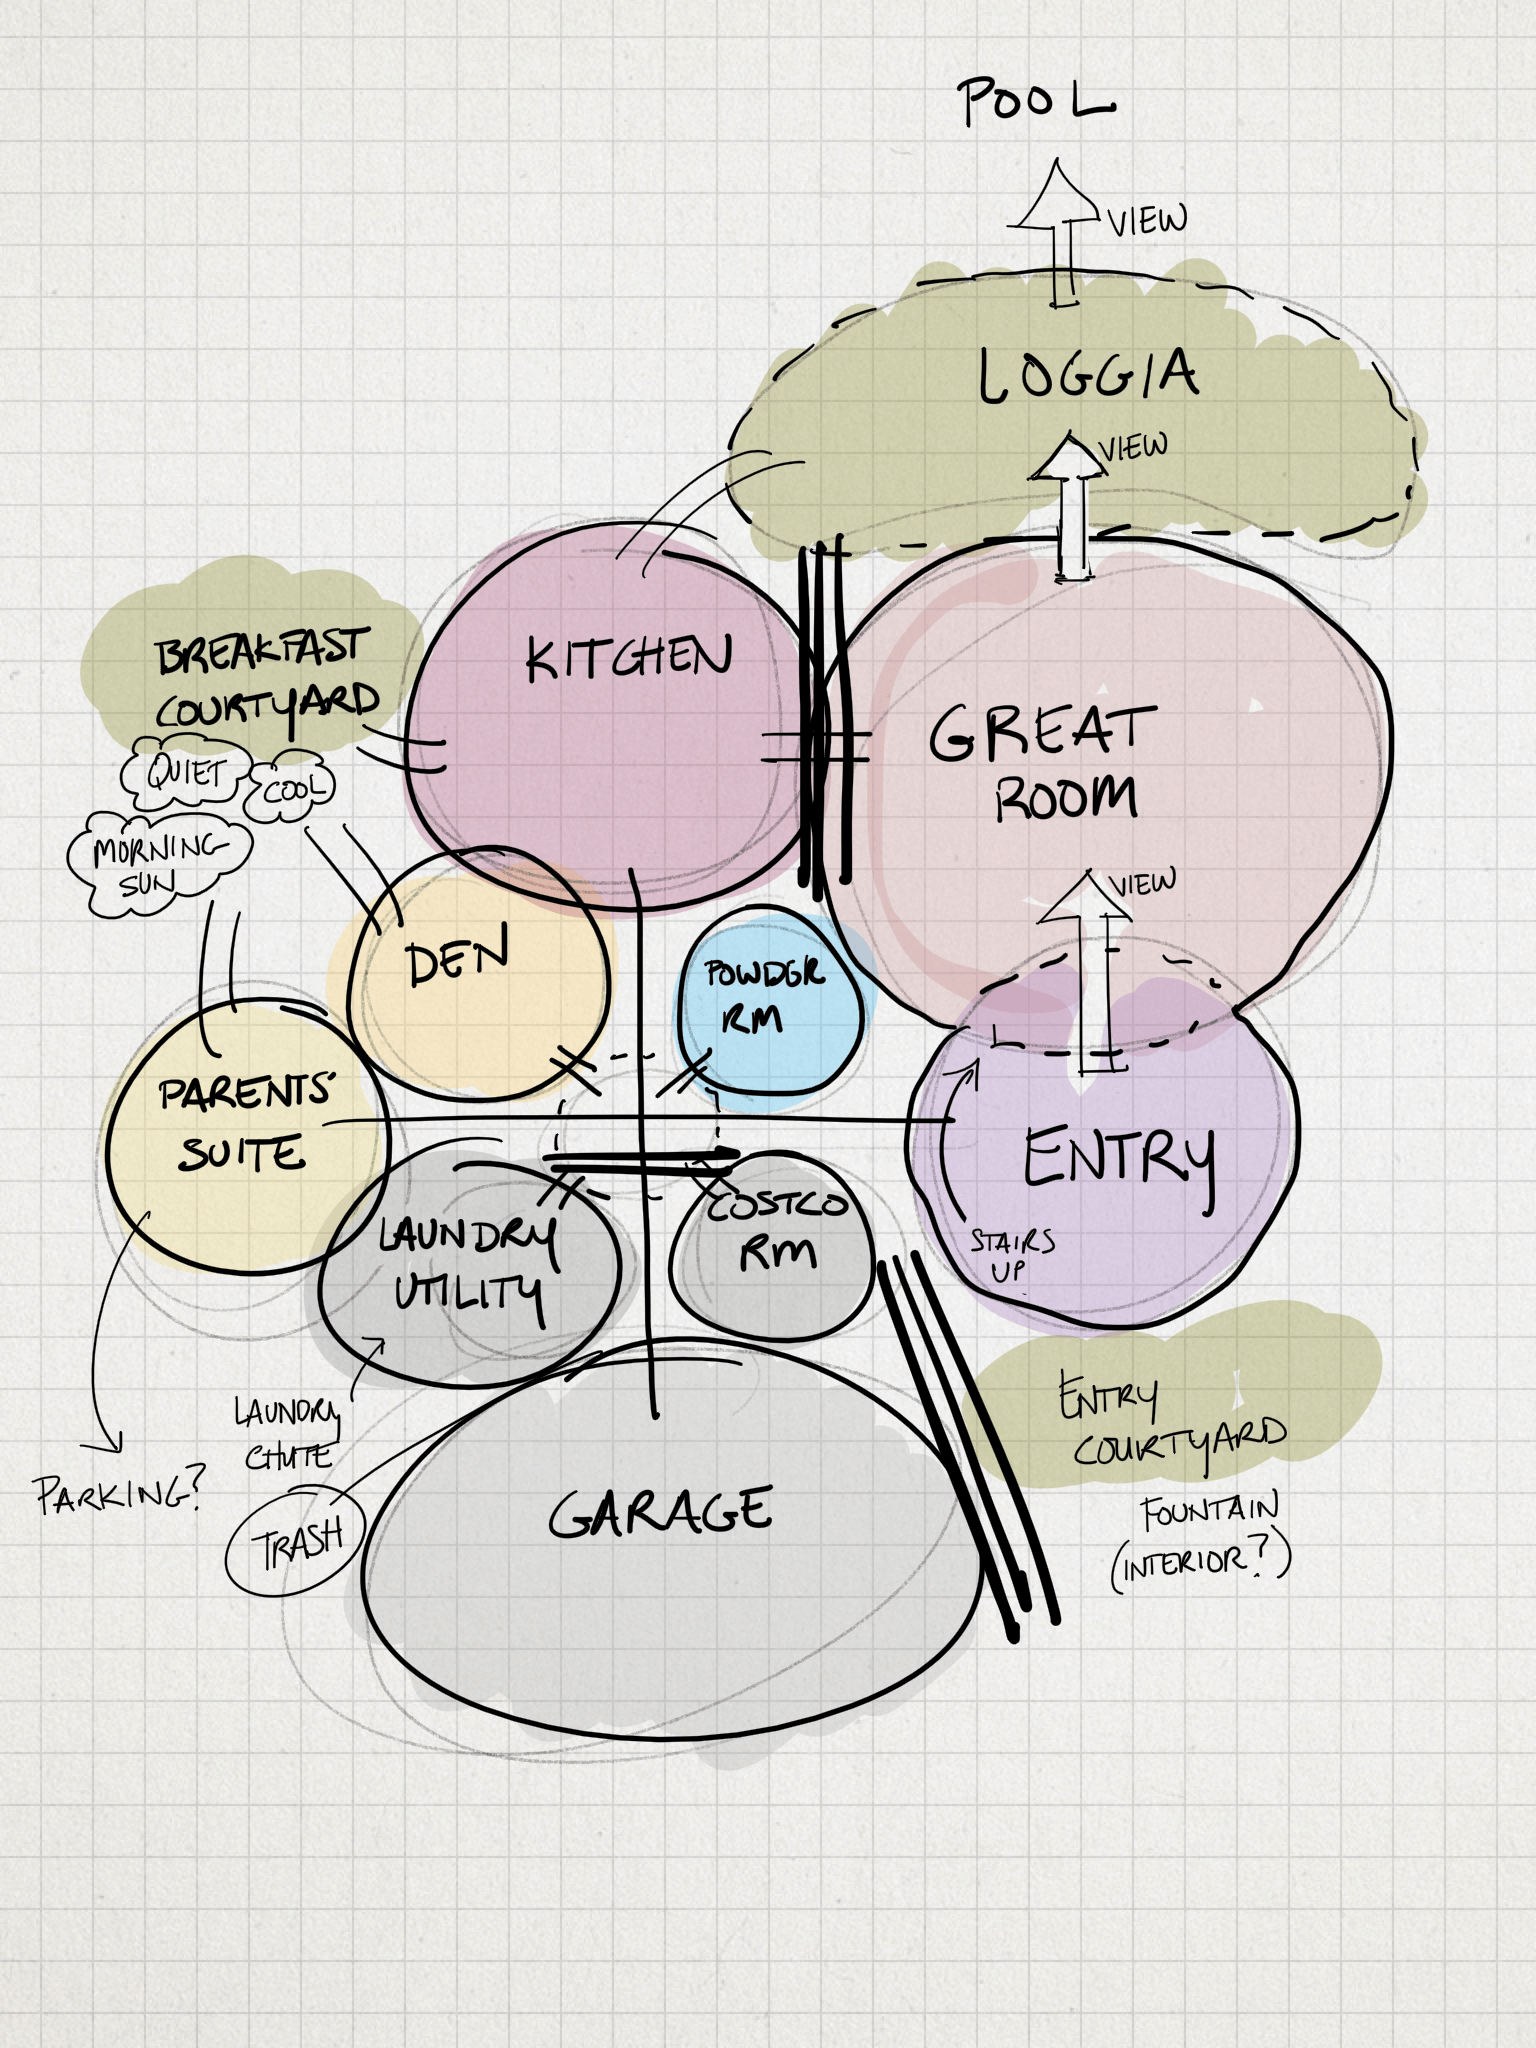 POOL
VIEW
LOGGIA
VIEW
BREAKFAST
COURTYARD
KITCHEN
GREAT
ROOM
QUIET
COOL
MORNING
SUN
VIEW
DEN
POWDER
RM
PARENTS'
SUITE
ENTRY
LAUNDRY
UTILITY
COSTCO
RM
STAIRS
UP
LAUNDRY
CHUTE
PARKING?
TRASH
GARAGE
ENTRY
COURTYARD
FOUNTAIN
(INTERIOR?)